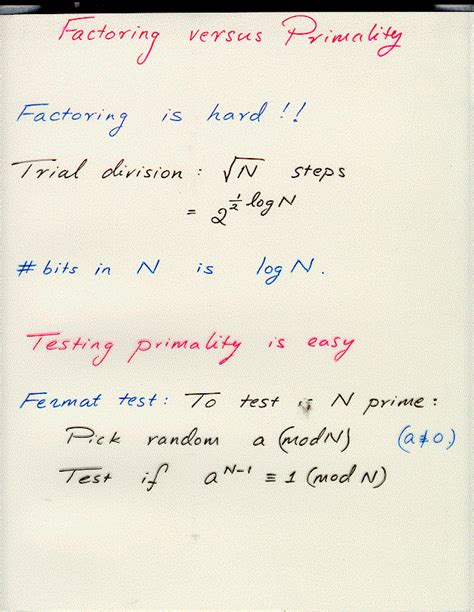 Factoring versus Primality
Factoring is hard !!
Trial division : √N steps
= 2^{½ log N}
# bits in N is log N.
Testing primality is easy
Fermat test : To test is N prime :
Pick random a (mod N) (a≠0)
Test if a^{N-1} ≡ 1 (mod N)